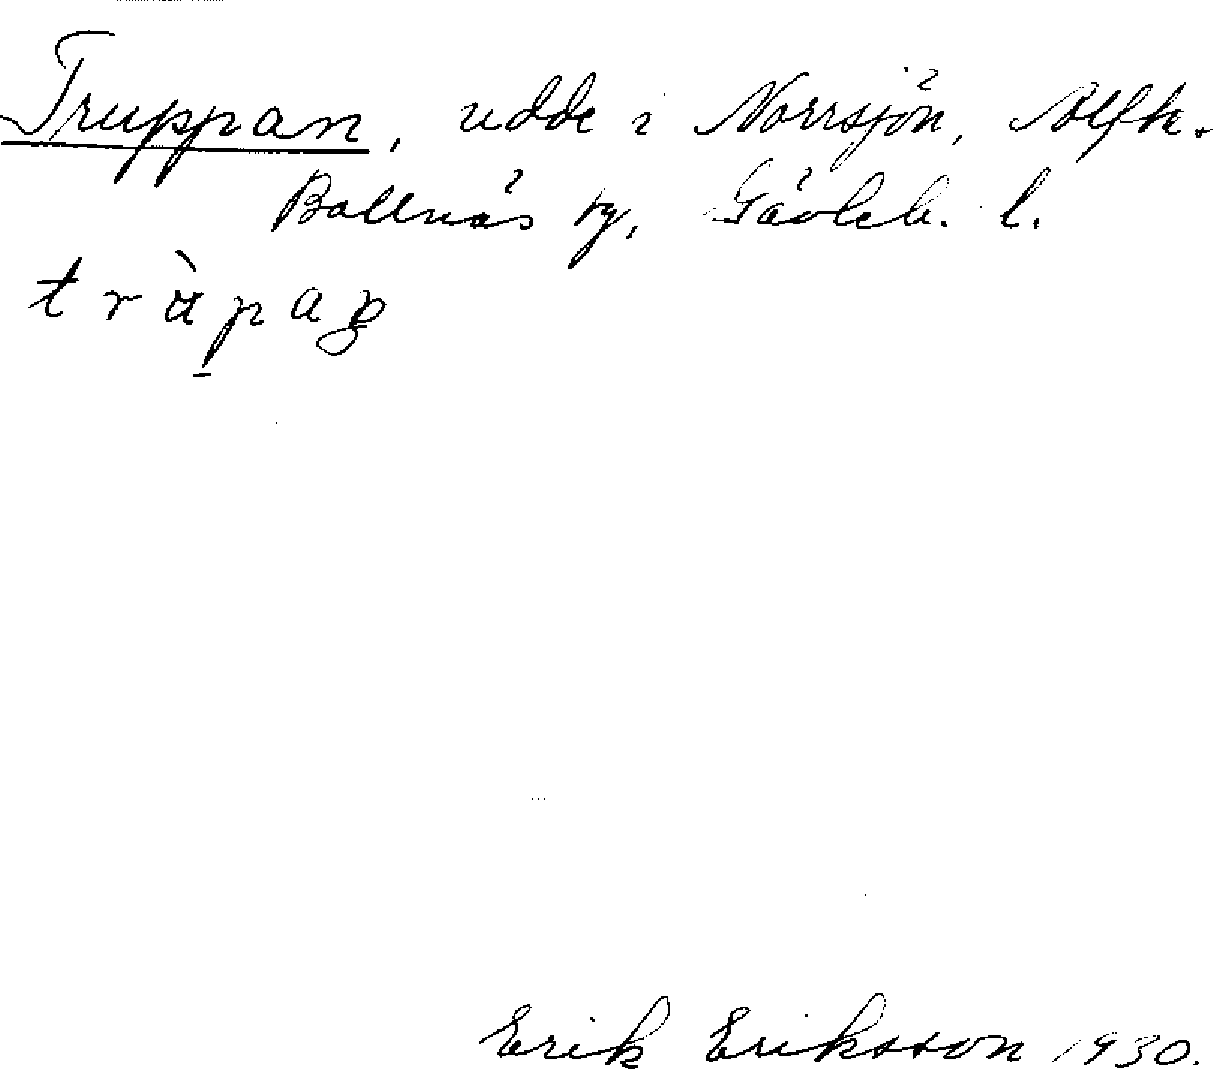 Truppan, udde i Norrsjön, Alfta.
Bollnäs tg, Gävleb. l.
Erik Eriksson 1930.